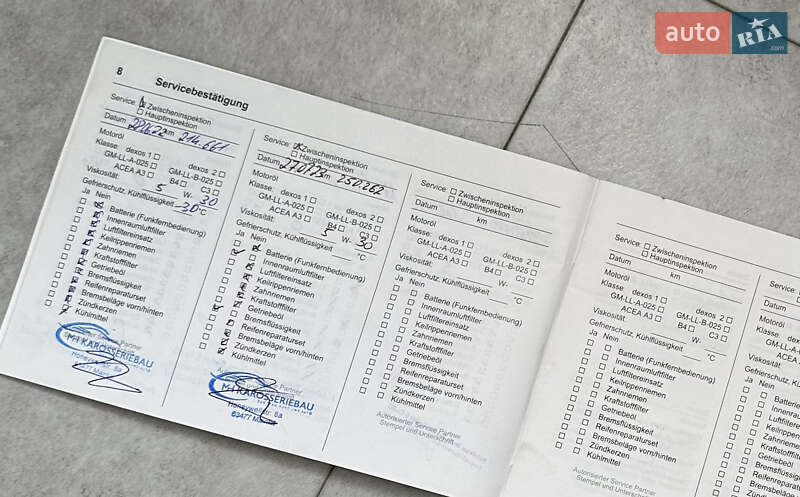 auto RIA.com
8 Servicebestätigung
Service: Zwischeninspektion
Hauptinspektion
Datum km 214.661
Motoröl
Klasse: dexos 1 dexos 2
GM-LL-A-025 GM-LL-B-025
ACEA A3 B4 C3
Viskosität: 5 W- 30
Gefrierschutz, Kühlflüssigkeit -30 °C
Ja Nein
Batterie (Funkfernbedienung)
Innenraumluftfilter
Luftfiltereinsatz
Keilrippenriemen
Zahnriemen
Kraftstofffilter
Getriebeöl
Bremsflüssigkeit
Reifenreparaturset
Bremsbeläge vorn/hinten
Zündkerzen
Kühlmittel
M+I KAROSSERIEBAU
Service: Zwischeninspektion
Hauptinspektion
Datum km 250.262
Motoröl
Klasse: dexos 1 dexos 2
GM-LL-A-025 GM-LL-B-025
ACEA A3 B4 C3
Viskosität: 5 W- 30
Gefrierschutz, Kühlflüssigkeit °C
Ja Nein
Batterie (Funkfernbedienung)
Innenraumluftfilter
Luftfiltereinsatz
Keilrippenriemen
Zahnriemen
Kraftstofffilter
Getriebeöl
Bremsflüssigkeit
Reifenreparaturset
Bremsbeläge vorn/hinten
Zündkerzen
Kühlmittel
M+I KAROSSERIEBAU
Service: Zwischeninspektion
Hauptinspektion
Datum km
Motoröl
Klasse: dexos 1 dexos 2
GM-LL-A-025 GM-LL-B-025
ACEA A3 B4 C3
Viskosität: W-
Gefrierschutz, Kühlflüssigkeit °C
Ja Nein
Batterie (Funkfernbedienung)
Innenraumluftfilter
Luftfiltereinsatz
Keilrippenriemen
Zahnriemen
Kraftstofffilter
Getriebeöl
Bremsflüssigkeit
Reifenreparaturset
Bremsbeläge vorn/hinten
Zündkerzen
Kühlmittel
Autorisierter Service Partner
Stempel und Unterschrift
Service: Zwischeninspektion
Hauptinspektion
Datum km
Motoröl
Klasse: dexos 1 dexos 2
GM-LL-A-025 GM-LL-B-025
ACEA A3 B4 C3
Viskosität: W-
Gefrierschutz, Kühlflüssigkeit °C
Ja Nein
Batterie (Funkfernbedienung)
Innenraumluftfilter
Luftfiltereinsatz
Keilrippenriemen
Zahnriemen
Kraftstofffilter
Getriebeöl
Bremsflüssigkeit
Reifenreparaturset
Bremsbeläge vorn/hinten
Zündkerzen
Kühlmittel
Autorisierter Service Partner
Stempel und Unterschrift
Service:
Datum
Motoröl
Klasse:
Viskosität:
Gefrierschutz
Ja Nein